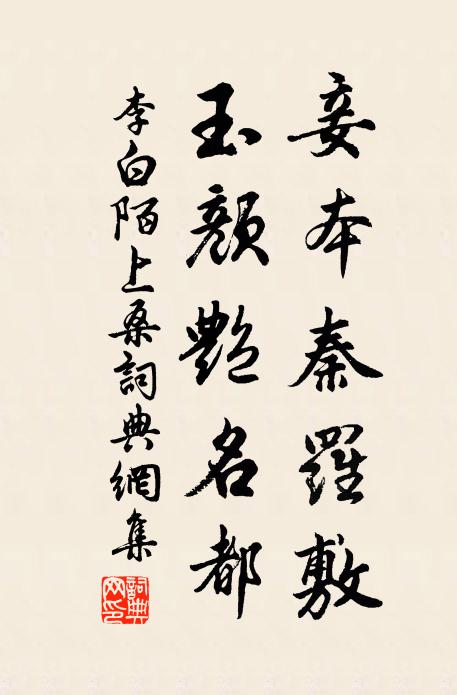 妾本秦羅敷
玉顏艷名都
李白陌上桑詞典網集
詞典
网印